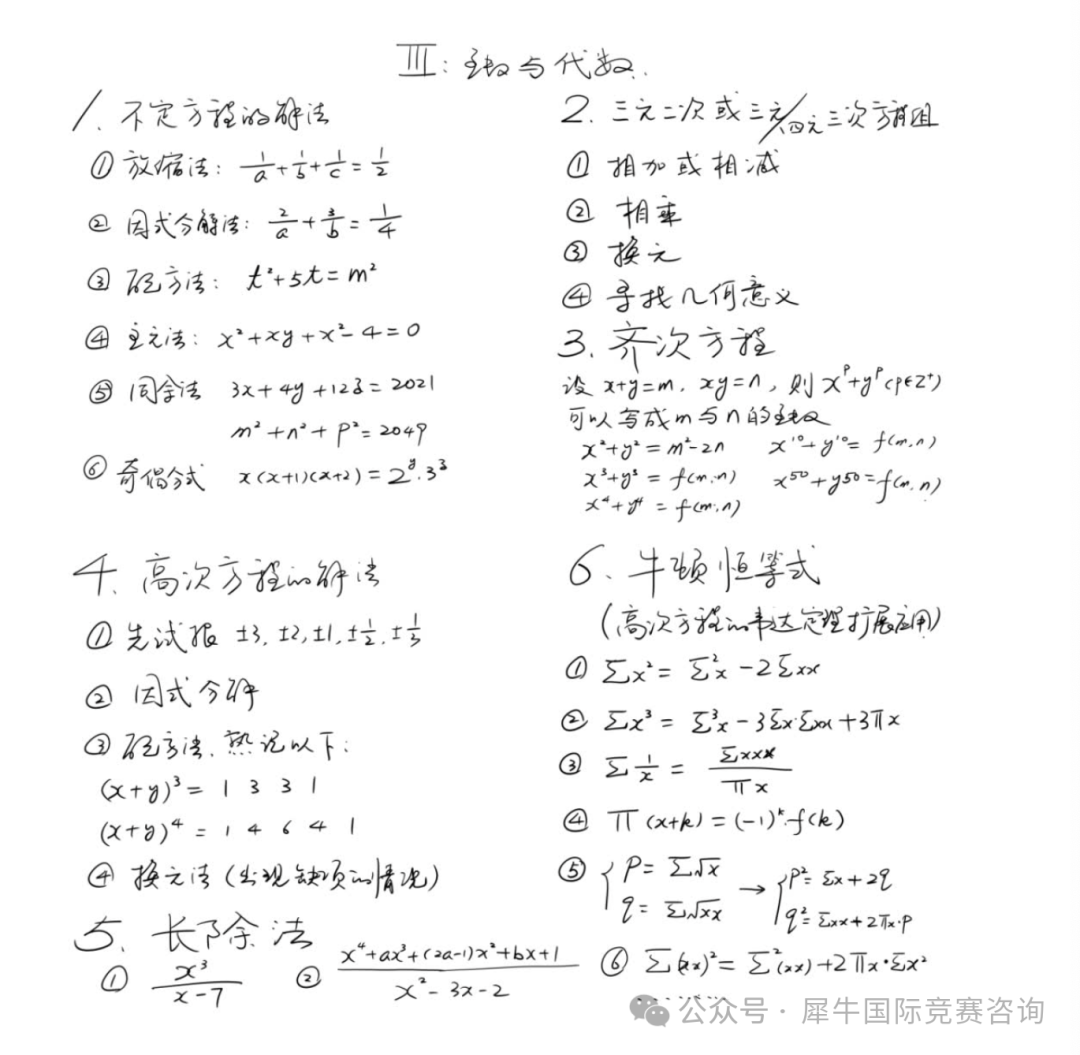 Ⅲ: 函数与代数.
1. 不定方程的解法
① 放缩法: 1/a + 1/b + 1/c = 1/2
② 因式分解法: 2/a + 3/b = 1/4
③ 配方法: t²+5t = m²
④ 主元法: x²+xy+x²-4=0
⑤ 同余法 3x+4y+12z = 2021
m²+n²+p²=2049
⑥ 奇偶分式 x(x+1)(x+2) = 2^y·3^z
2. 三元二次或三元/四元三次方程组
① 相加或相减
② 相乘
③ 换元
④ 寻找几何意义
3. 齐次方程
设 x+y=m, xy=n, 则 x^p+y^p (p∈Z⁺)
可以写成m与n的函数
x²+y² = m²-2n x¹⁰+y¹⁰ = f(m,n)
x³+y³ = f(m,n) x⁵⁰+y⁵⁰ = f(m,n)
x⁴+y⁴ = f(m,n)
4. 高次方程的解法
① 先试根 ±3, ±2, ±1, ±1/2, ±1/3
② 因式分解
③ 配方法, 熟记以下:
(x+y)³ = 1 3 3 1
(x+y)⁴ = 1 4 6 4 1
④ 换元法 (出现缺项的情况)
5. 长除法
① x³/(x-7) ② (x⁴+ax³+(2a-1)x²+bx+1)/(x²-3x-2)
6. 牛顿恒等式
(高次方程的韦达定理扩展应用)
① Σx² = Σ²x - 2Σxx
② Σx³ = Σ³x - 3Σx·Σxx + 3πx
③ Σ1/x = Σxxx/πx
④ π(x+k) = (-1)^k·f(k)
⑤ { p = Σ√x q = Σ√xx → { p² = Σx+2q q² = Σxx+2πx·p
⑥ Σ(xx)² = Σ²(xx)+2πx·Σx²
........
公众号·犀牛国际竞赛咨询